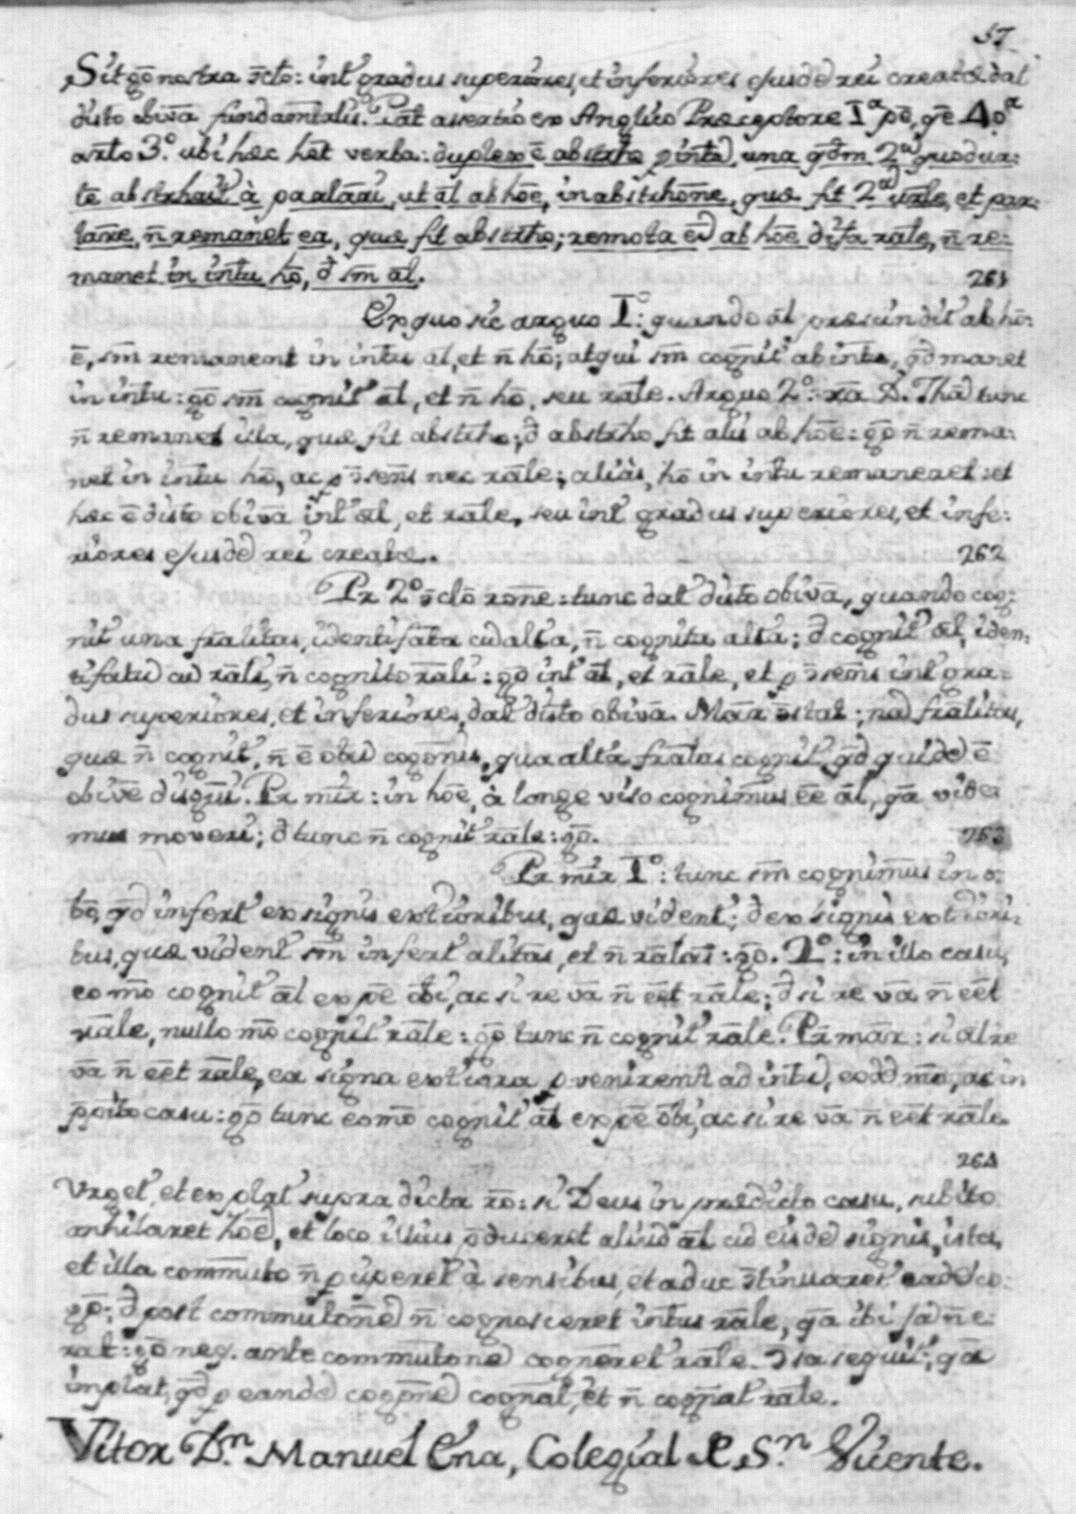 57
Sit gō nostra c̄clo: int' gradus superiores, et inferiores ejusdē rei creatæ dat'
disto obivā fundamtalis. Pat' assertio ex Angelico Præceptore Iª pē, qē 40ª
arto 3.º ubi hæc het verba: duplex ē abstrho p intū, una q̄dm 2ª quod ur:
tē abstrhait' à parlāri, ut āl ab hōe, in abstrhōne, quæ fit 2ª urle, et par:
lāre, n̄ remanet ea, quæ fit abstrho; remota en̄ ab hōe dr̄ia rāle, n̄ re:
manet in intu hō, d̄ sm̄ āl.
261
Ex quo sic arguo I.º: quando āl præscindit' ab hō:
ē, sm̄ remanent in intu āl, et n̄ hō; atqui sm̄ cognit' ab intu, q̄d manet
in intu: gō sm̄ cognit' āl, et n̄ hō, seu rāle. Arguo 2.º: xa D. Thā tunc
n̄ remanet illa, quæ fit abstrho; d̄ abstrho fit alis ab hōe: gō n̄ rema:
net in intu hō, ac p c̄sens nec rāle; aliàs, hō in intu remaneret: et
hæc ē disto obivā int' āl, et rāle, seu int' gradus superiores, et infe:
riores ejusdē rei creatæ.
262
Pr 2º c̄clō rōne: tunc dat' disto obivā, quando cog:
nit' una fralitas, identifata cū alta, n̄ cognita alta; d̄ cognit' āl, iden:
tifatū cū rāli, n̄ cognito rāli: gō int' āl, et rāle, et p c̄sens int' gra:
dus superiores, et inferiores, dat' disto obivā. Mār c̄stat; nā fralitas,
quæ n̄ cognit', n̄ ē obū cogōnis, qua alta frālitas cognit', q̄d quidē ē
obivē disgui. Pr mir: in hōe, à longe viso cognimus ēe āl, qā vide:
mus moveri; d̄ tunc n̄ cognit' rāle: gō.
263
Pr mir I.º: tunc sm̄ cognimus in o:
bē, q̄d infert' ex signis extioribus, quæ vident'; d̄ ex signis extiori:
bus, quæ vident' sm̄ infert' alitas, et n̄ rālitas: gō. 2.º: in illo casu,
eo mō cognit' āl ex pē obi, ac si re vā n̄ eēt rāle; d̄ si re vā n̄ eēt
rāle, nullo mō cognit' rāle: gō tunc n̄ cognit' rāle. Pr mār: si al re
vā n̄ eēt rāle, ea signa extiora p venirent ad intū, eodē mō, ac in
p̄poito casu: gō tunc eo mō cognit' āl ex pē obi, ac si re vā n̄ eēt rāle.
264
Urget', et explat' supra dicta rō: si Deus in prædicto casu, subito
anhilaret hōē, et loco illius p̄duceret aliud āl cū eisdē signis, ista,
et illa commuto n̄ p ciperet' à sensibus, et aduc c̄tinuaret' eadē co:
gō: d̄ post commutonē n̄ cognosceret intus rāle, qā ibi jā n̄ e:
rat: gō neq. ante commutonē cogneret' rāle. Ista seguit', qā
implat, q̄d p eandē cognē cognat', et n̄ cognat' rāle.
Vitor Dn. Manuel Ena, Colegial de Sn. Vicente.